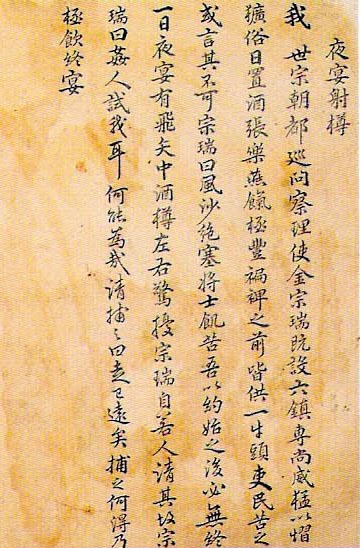 夜宴射樽
我 世宗朝都巡問察理使金宗瑞旣設六鎭專尙威猛以慴
獷俗日置酒張樂燕餼極豐褊裨之前皆供一牛頭吏民苦之
或言其不可宗瑞曰風沙絶塞將士飢苦吾以約始之後必無終
一日夜宴有飛矢中酒樽左右驚擾宗瑞自若人請其故宗
瑞曰姦人試我耳何能為哉請捕之曰走已遠矣捕之何得乃
極飮終宴